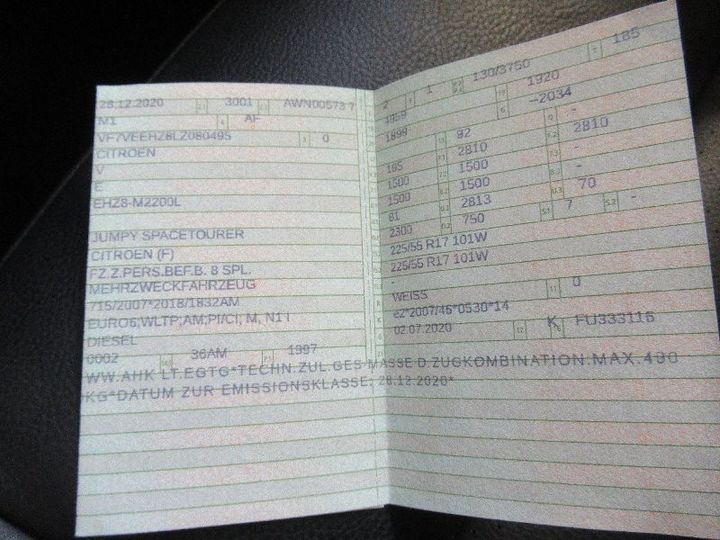 28.12.2020 3001 AWN00573 7
M1 AF
VF7VEEHZ8LZ080495 0
CITROEN
V
E
EHZ8-M2200L
JUMPY SPACETOURER
CITROEN (F)
FZ.Z.PERS.BEF.B. 8 SPL.
MEHRZWECKFAHRZEUG
715/2007*2018/1832AM
EURO6;WLTP;AM;PI/CI, M, N1 I
DIESEL
0002 36AM 1997
2 1 130/3750 185
4959 1920
1899 —2034 -
195 92 2810
1500 2810 -
1500 1500 -
81 1500 70
2300 2813 7 -
750
225/55 R17 101W
225/55 R17 101W
-
WEISS 0
e2*2007/46*0530*14
02.07.2020 K FU333116
WW.AHK LT.EGTG*TECHN.ZUL.GES-MASSE D.ZUGKOMBINATION:MAX.490
KG*DATUM ZUR EMISSIONSKLASSE: 28.12.2020*